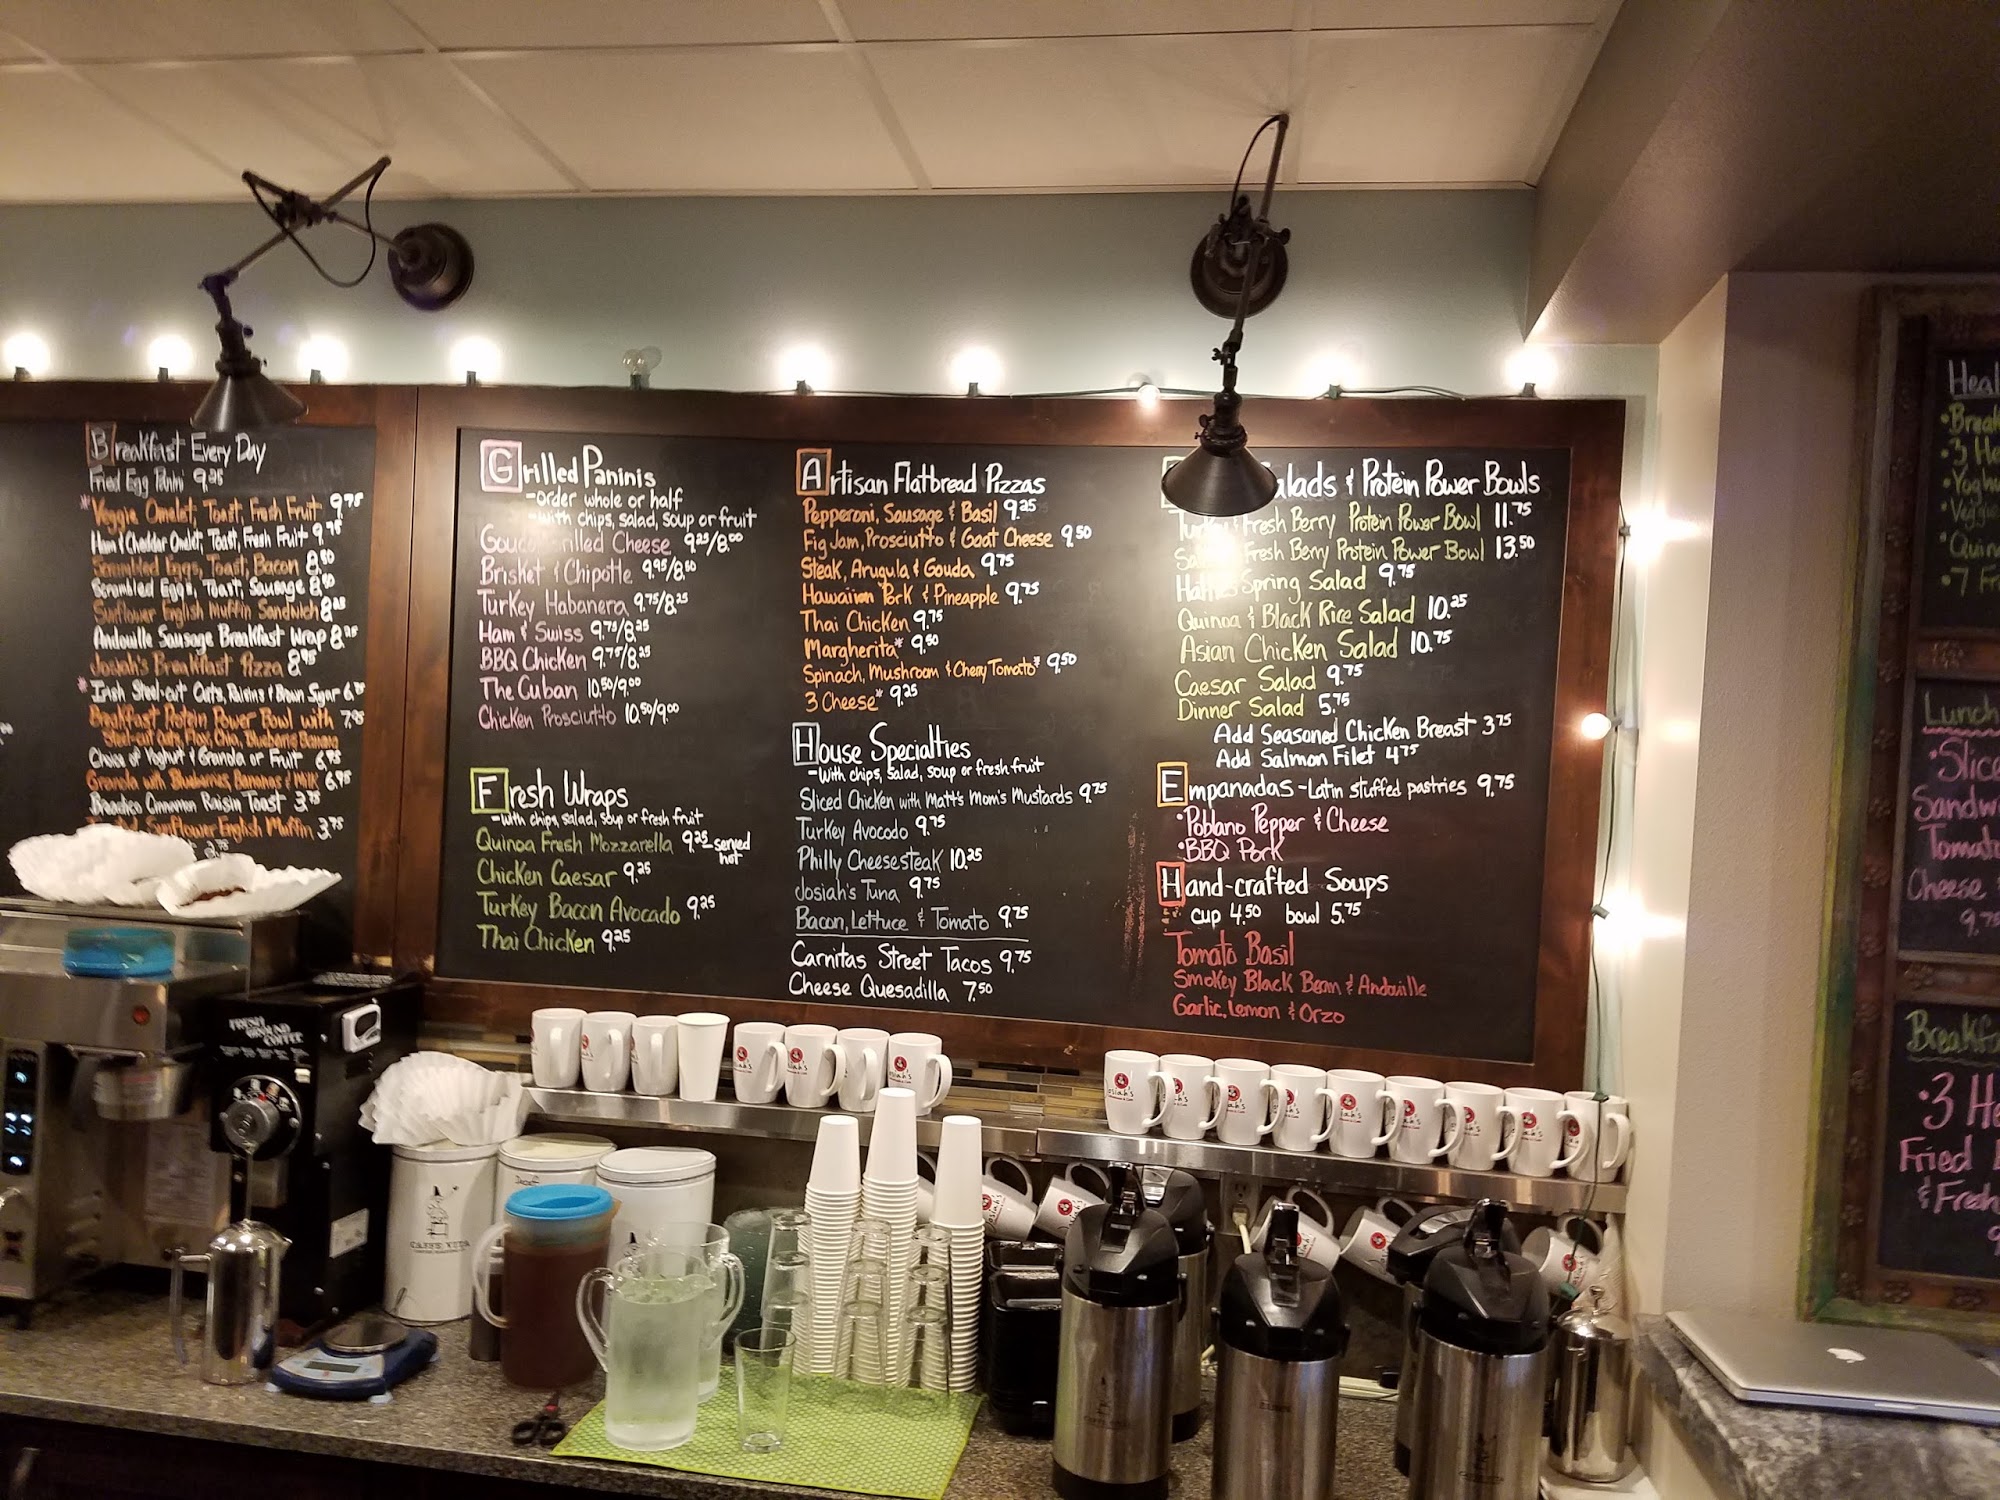 Breakfast Every Day
Fried Egg Panini 9.25
*Veggie Omelet, Toast, Fresh Fruit 9.75
Ham & Cheddar Omelet, Toast, Fresh Fruit 9.75
Scrambled Eggs, Toast, Bacon 8.50
Scrambled Eggs, Toast, Sausage 8.50
Sunflower English Muffin Sandwich
Andouille Sausage Breakfast Wrap 8.25
Josiah's Breakfast Pizza 8.95
*Irish Steel-cut Oats, Raisins & Brown Sugar 6.75
Breakfast Protein Power Bowl with 7.95
Steel-cut oats, Flax, Chia, Blueberries Banana
Choice of Yoghurt & Granola or Fruit 6.95
Granola with Blueberries Bananas & Milk 6.95
Breadico Cinnamon Raisin Toast 3.75
Sunflower English Muffin 3.75
Grilled Paninis
-order whole or half
-with chips, salad, soup or fruit
Grilled Cheese 9.25/8.00
Brisket & Chipotle 9.95/8.50
Turkey Habanera 9.75/8.25
Ham & Swiss 9.75/8.25
BBQ Chicken 9.75/8.25
The Cuban 10.50/9.00
Chicken Prosciutto 10.50/9.00
Fresh Wraps
-with chips, salad, soup or fresh fruit
Quinoa Fresh Mozzarella 9.25 -served hot
Chicken Caesar 9.25
Turkey Bacon Avocado 9.25
Thai Chicken 9.25
Artisan Flatbread Pizzas
Pepperoni, Sausage & Basil 9.25
Fig Jam, Prosciutto & Goat Cheese 9.50
Steak, Arugula & Gouda 9.75
Hawaiian Pork & Pineapple 9.75
Thai Chicken 9.75
Margherita* 9.50
Spinach, Mushroom & Cherry Tomato* 9.50
3 Cheese* 9.25
House Specialties
-with chips, salad, soup or fresh fruit
Sliced Chicken with Matt's Mom's Mustards 9.75
Turkey Avocado 9.75
Philly Cheesesteak 10.25
Josiah's Tuna 9.75
Bacon, Lettuce & Tomato 9.75
Carnitas Street Tacos 9.75
Cheese Quesadilla 7.50
Salads & Protein Power Bowls
Turkey & Fresh Berry Protein Power Bowl 11.75
Fresh Berry Protein Power Bowl 13.50
Spring Salad 9.75
Quinoa & Black Rice Salad 10.25
Asian Chicken Salad 10.75
Caesar Salad 9.75
Dinner Salad 5.75
Add Seasoned Chicken Breast 3.75
Add Salmon Filet 4.75
Empanadas -Latin stuffed pastries 9.75
•Poblano Pepper & Cheese
•BBQ Pork
Hand-crafted Soups
cup 4.50 bowl 5.75
Tomato Basil
Smokey Black Bean & Andouille
Garlic, Lemon & Orzo
•3 He
•7 Fr
Lunch
•Slice
Tomato
Cheese
9.75
•3 He
Fried
& Fresh
FRESH GROUND COFFEE
CAFFE VITA
Decaf
Josiah's